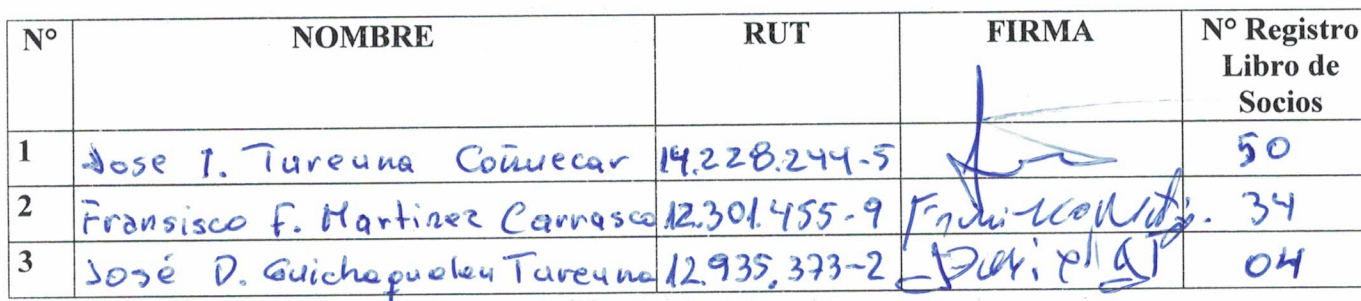 N° NOMBRE RUT FIRMA N° Registro
Libro de
Socios
1 Jose I. Tureuna Coñuecar 14.228.244-5 50
2 Fransisco F. Martinez Carrasco 12.301.455-9 34
3 José D. Guichapuelen Tureuna 12.935.373-2 04